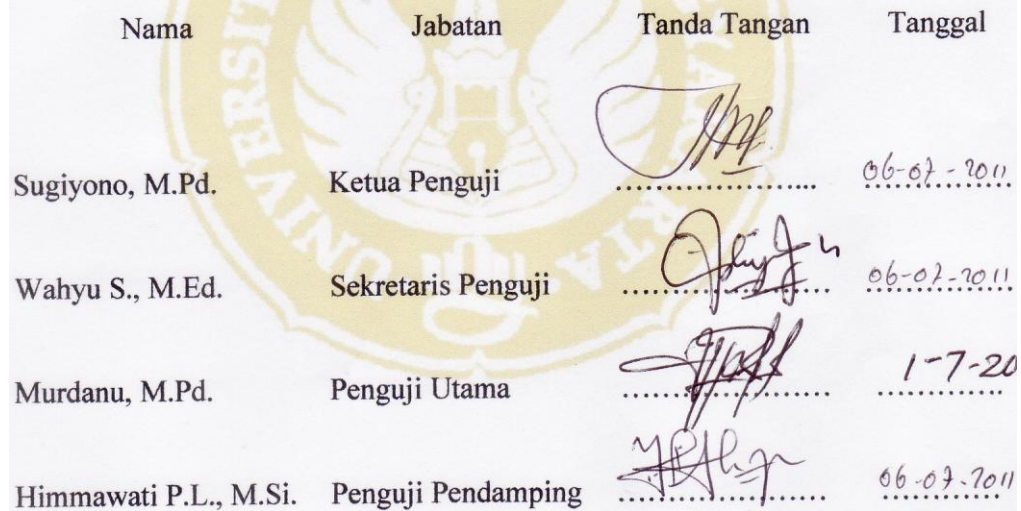 Nama Jabatan Tanda Tangan Tanggal
Sugiyono, M.Pd. Ketua Penguji .................... 06-07-2011
Wahyu S., M.Ed. Sekretaris Penguji .................... 06-07-2011
Murdanu, M.Pd. Penguji Utama .................... 1-7-20
Himmawati P.L., M.Si. Penguji Pendamping .................... 06-07-2011
UNIVERSIT
KARTA